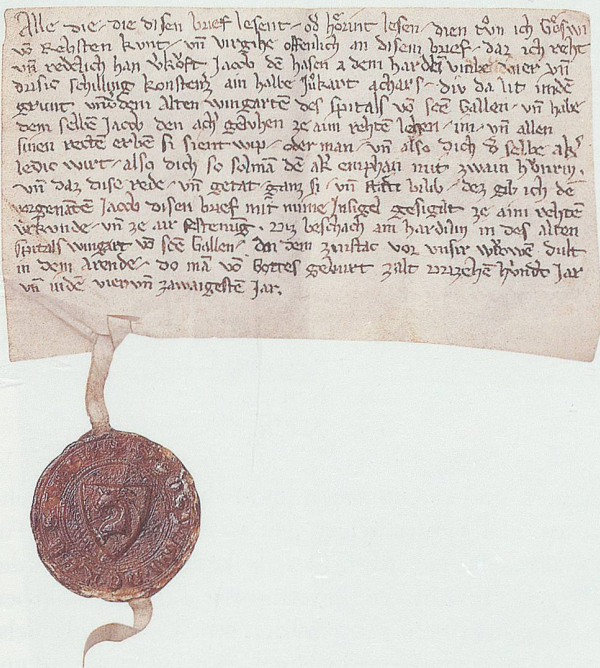 Alle die die disen brief lesent od hœrint lesen dien tvͦn ich Goͤswi
vō Rebsten kunt vn̄ virgihe offenlich an disem brief daz ich reht
vn̄ redelich han v̾koft Jacob dē hasen a dem hardeli vmbe vier vn̄
drisic schilling kostenzˀ ain halbe Jukart achers div da lit indē
grunt vnd̾ dem alten wingarten des spitals vō scē Gallen vn̄ habe
dem selbē Jacob den ach̾ geluhen ze aim rehten lehen im vn̄ allen
sinen rehtē erben si sient wip oder man vn̄ also dich d̾ selbe ak̾
ledic wirt also dich so sol man dē ak̾ emphan mit zwain hv̊nirn
vn̄ daz dise rede vn̄ getat ganz si vn̄ stæt belib dez gib ich dē
vorgenātē Jacob disen brief mit mime Insigel gesigilt ze aim rehten
vrkvnde vn̄ ze ainr festenvng. Diz beschach am hardlin in des alten
spitals wingart vō scē Gallen an dem zinstac vor vnsir vrowen dult
in dem Arende do mā vō Gottes geburt zalt drizehē hv̊ndt Jar
vn̄ indē viervn̄ zwaigestē Jar.